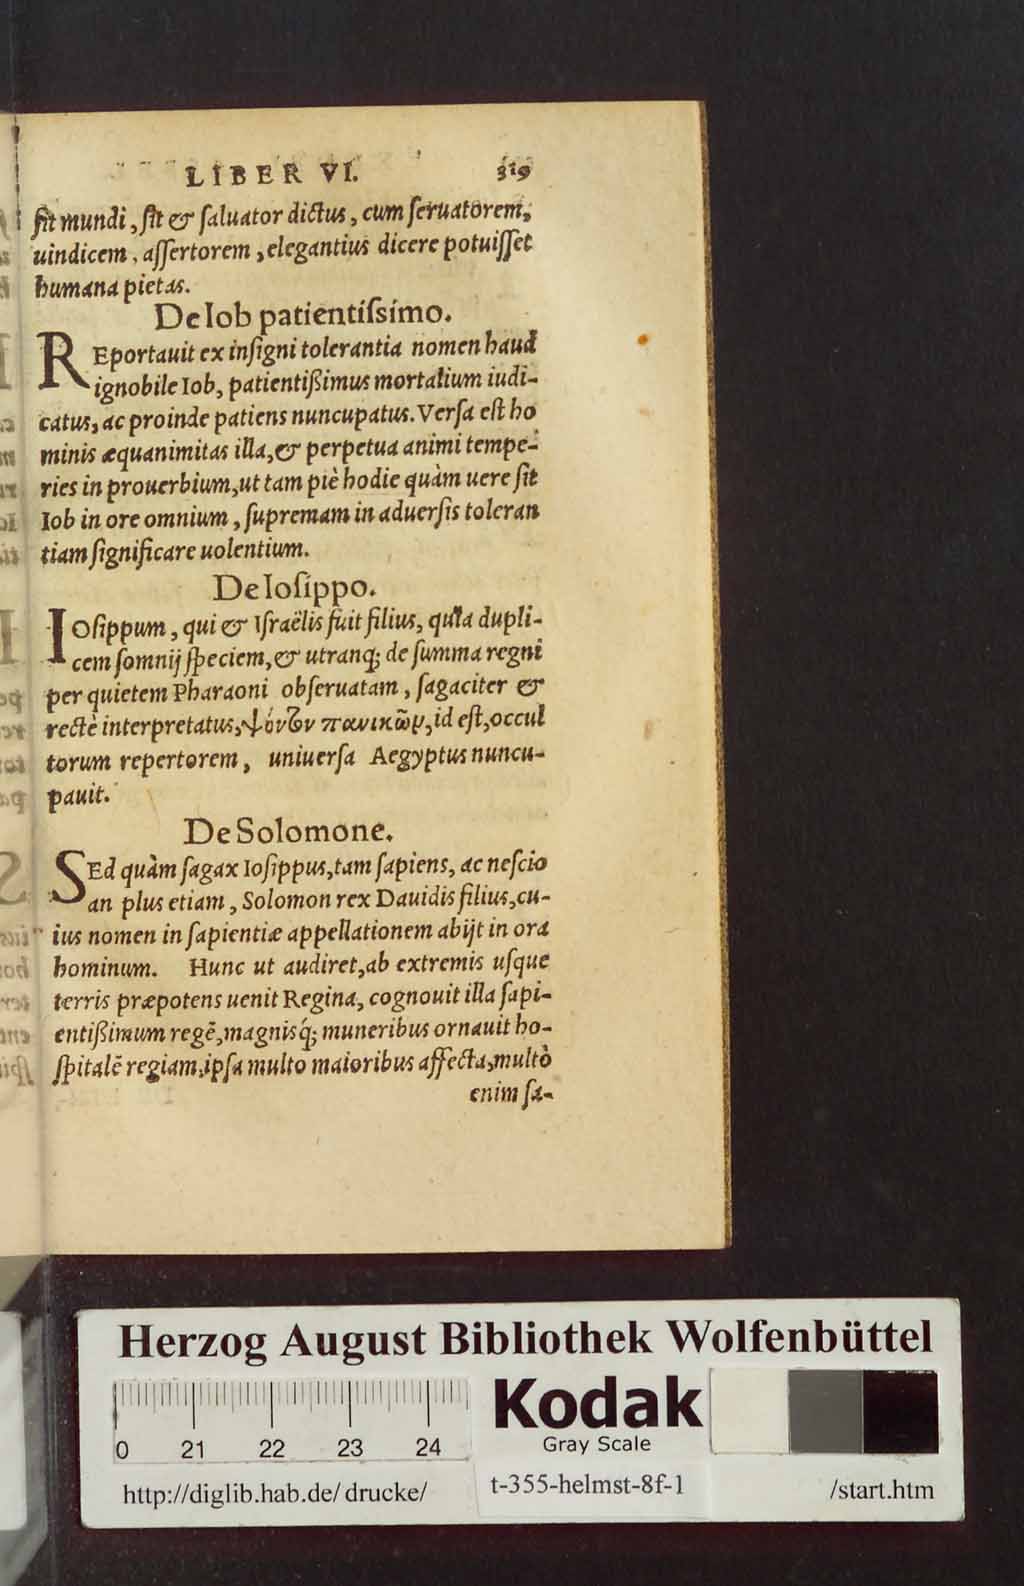 LIBER VI. 319
ſit mundi, ſit & ſaluator dictus, cum ſeruatorem,
uindicem, aſſertorem, elegantius dicere potuiſſet
humana pietas.
De Iob patientiſsimo.
REportauit ex inſigni tolerantia nomen haud
ignobile Iob, patientißimus mortalium iudi-
catus, ac proinde patiens nuncupatus. Verſa eſt ho
minis æquanimitas illa, & perpetua animi tempe-
ries in prouerbium, ut tam piè hodie quàm uere ſit
Iob in ore omnium, ſupremam in aduerſis toleran
tiam ſignificare uolentium.
De Ioſippo.
IOſippum, qui & Iſraëlis fuit filius, quia dupli-
cem ſomnij ſpeciem, & utranq; de ſumma regni
per quietem Pharaoni obſeruatam, ſagaciter &
rectè interpretatus, id eſt, occul
torum repertorem, uniuerſa Aegyptus nuncu-
pauit.
De Solomone.
SEd quàm ſagax Ioſippus, tam ſapiens, ac neſcio
an plus etiam, Solomon rex Dauidis filius, cu-
ius nomen in ſapientiæ appellationem abijt in ora
hominum. Hunc ut audiret, ab extremis uſque
terris præpotens uenit Regina, cognouit illa ſapi-
entißimum regẽ, magnisq́; muneribus ornauit ho-
ſpitalẽ regiam, ipſa multo maioribus affecta, multò
enim ſa-
Herzog August Bibliothek Wolfenbüttel
0 21 22 23 24
Kodak
Gray Scale
http://diglib.hab.de/drucke/ t-355-helmst-8f-1 /start.htm